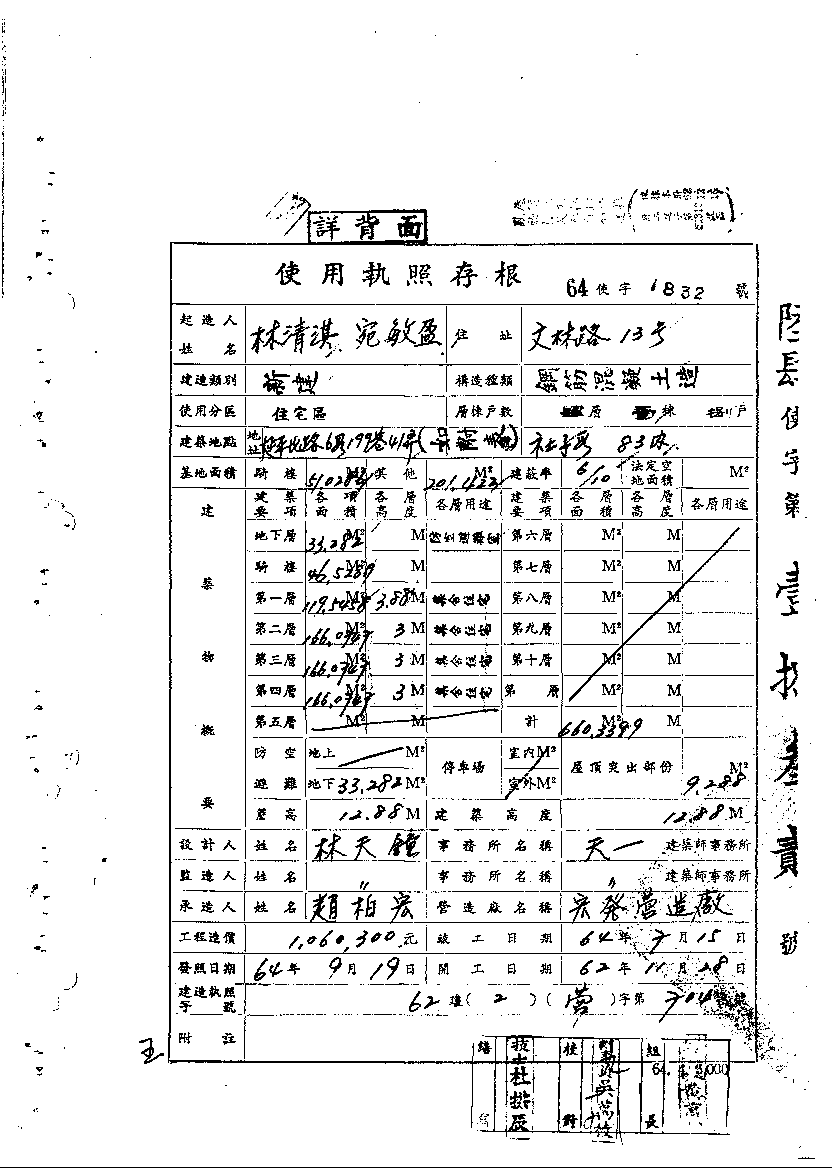 詳背面
使用執照存根 64使字1832號
起造人姓名 林清淇 宛敏盈 住址 文林路13号
建造類別 新建 構造種類 鋼筋混凝土造
使用分區 住宅區 層棟戶數 層 棟 戶
建築地點 地址 延平北路6段199巷41弄 社子段 83
基地面積 騎樓 51.0284 M² 其他 201.4223 M² 建蔽率 6/10 法定空地面積 M²
建築物概要
建築要項 各項面積 各層高度 各層用途 建築要項 各層面積 各層高度 各層用途
地下層 33.282 M² M 第六層 M² M
騎樓 46.5289 M² 第七層 M² M
第一層 119.5458 M² 3.88 M 集合住宅 第八層 M² M
第二層 166.0747 M² 3 M 集合住宅 第九層 M² M
第三層 166.0747 M² 3 M 集合住宅 第十層 M² M
第四層 166.0747 M² 3 M 集合住宅 第 層 M² M
第五層 M² M 計 660.3399 M² M
防空避難 地上 M² 停車場 室內 M² 屋頂突出部份 9.288 M²
地下 33.282 M² 室外 M²
簷高 12.88 M 建築高度 12.88 M
設計人 姓名 林天鐘 事務所名稱 天一 建築師事務所
監造人 姓名 〃 事務所名稱 〃 建築師事務所
承造人 姓名 趙柏宏 營造廠名稱 宏發營造廠
工程造價 1,060,300元 竣工日期 64年7月15日
發照日期 64年9月19日 開工日期 62年11月28日
建造執照字號 62建(2)(营)字第704號
附註
玉
繕 技士杜 校對 吳 組長
64. 000
使字第壹 號